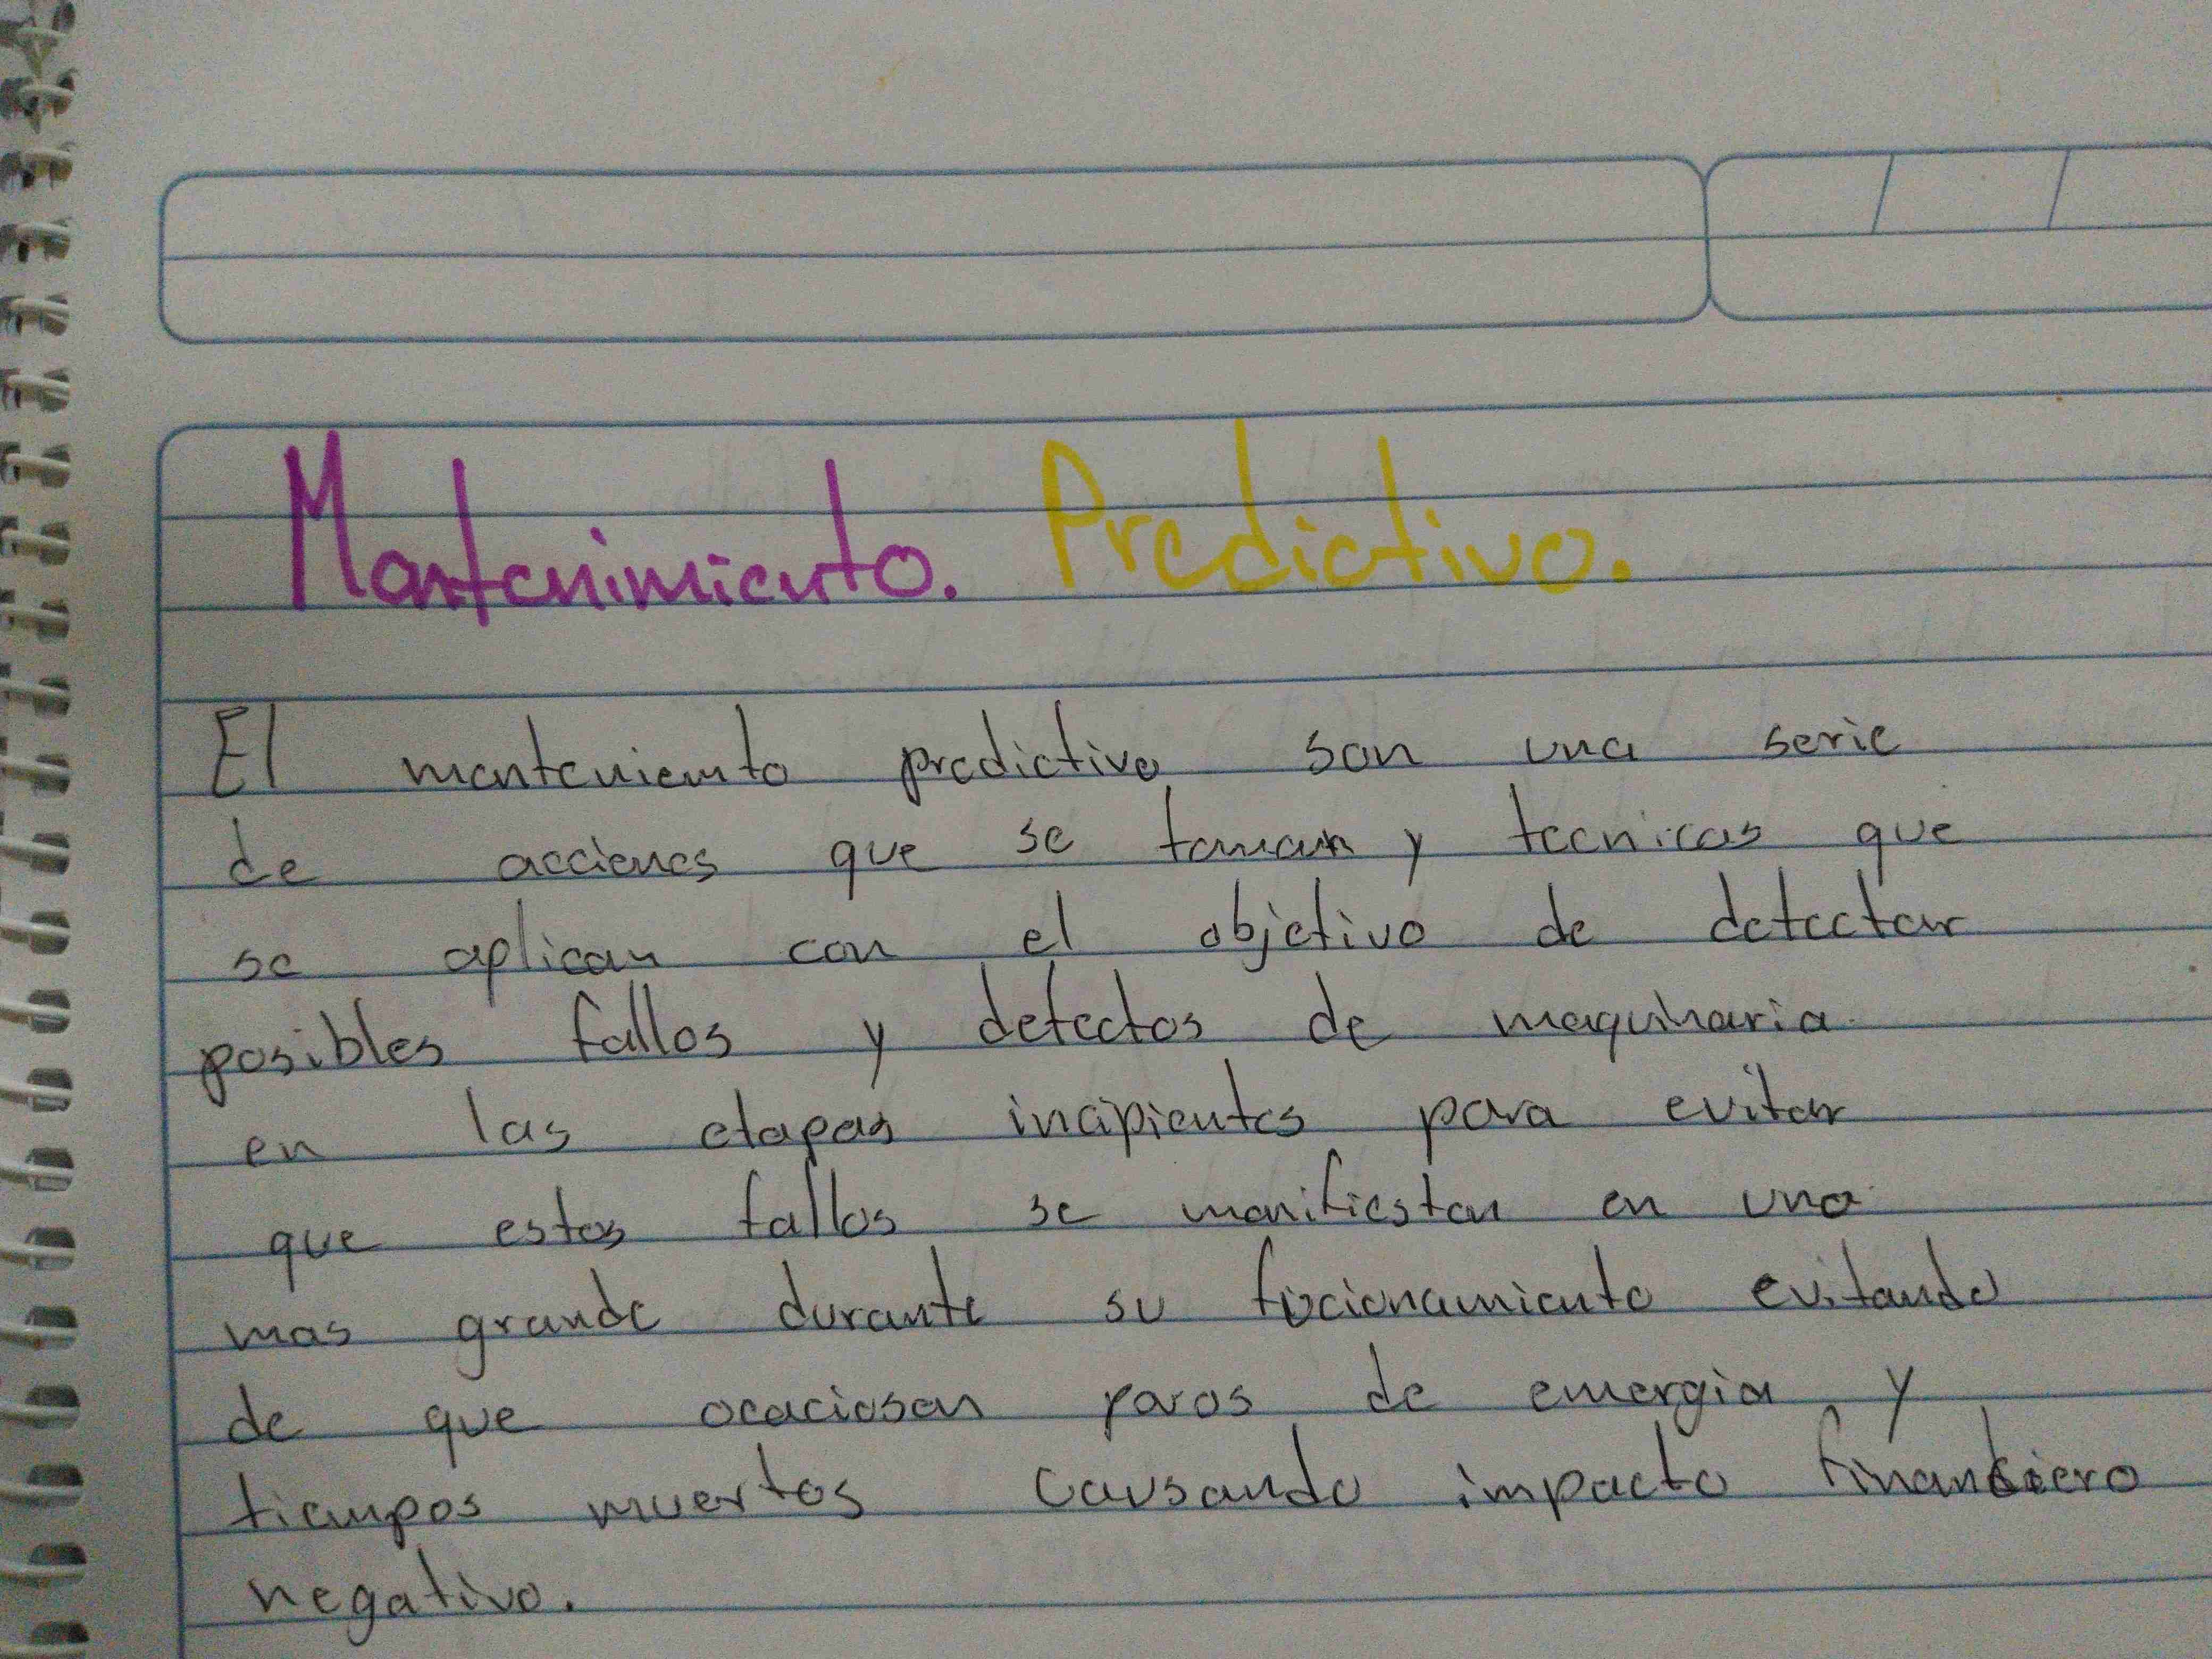 Mantenimiento. Predictivo.
El manteniemto predictivo son una serie
de acciones que se toman y tecnicas que
se aplican con el objetivo de detectar
posibles fallos y defectos de maquinaria
en las etapas incipientes para evitar
que estos fallos se manifiestan en una
mas grande durante su fucionamiento evitando
de que ocaciosan paros de emergia y
tiempos muertos causando impacto financiero
negativo.